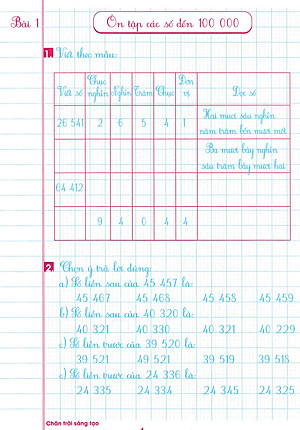 Bài 1
Ôn tập các số đến 100 000
1. Viết theo mẫu:
Viết số Chục nghìn Nghìn Trăm Chục Đơn vị Đọc số
26 541 2 6 5 4 1 Hai mươi sáu nghìn
năm trăm bốn mươi mốt
Ba mươi bảy nghìn
sáu trăm bảy mươi hai
64 412
9 4 0 4 4
2. Chọn ý trả lời đúng:
a) Số liền sau của 45 457 là:
45 467 45 468 45 458 45 459
b) Số liền sau của 40 320 là:
40 321 40 330 40 321 40 229
c) Số liền trước của 39 520 là:
39 521 49 521 39 519 39 518
e) Số liền trước của 24 336 là:
24 335 24 334 24 345 24 325
Chân trời sáng tạo